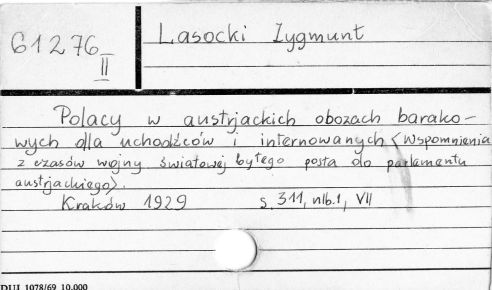 61276
II
Lasocki Zygmunt
Polacy w austrjackich obozach barako-
wych dla uchodźców i internowanych <Wspomnienia
z czasów wojny światowej byłego posła do parlamentu
austrjackiego>.
Kraków 1929 s. 311, nlb. 1, VII
DUJ 1078/69 10.000